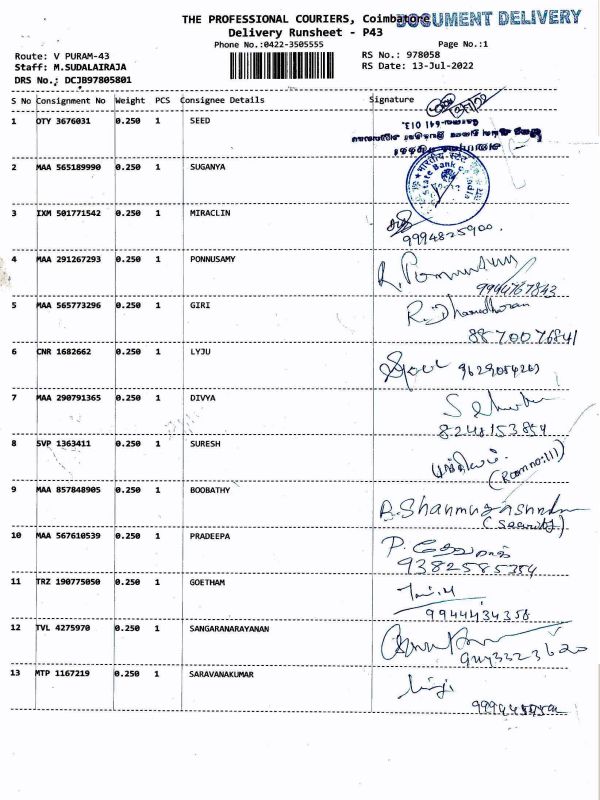 THE PROFESSIONAL COURIERS, Coimbatore
DOCUMENT DELIVERY
Delivery Runsheet - P43
Phone No.:0422-3505555
Page No.:1
Route: V PURAM-43
RS No.: 978058
Staff: M.SUDALAIRAJA
RS Date: 13-Jul-2022
DRS No.: DCJB97805801
S No Consignment No Weight PCS Consignee Details Signature
1 OTY 3676031 0.250 1 SEED
641 013.
2 MAA 565189990 0.250 1 SUGANYA
भारतीय स्टेट
State Bank of India
3 IXM 501771542 0.250 1 MIRACLIN
9994825900.
4 MAA 291267293 0.250 1 PONNUSAMY
R. Ponnusamy
9944767843
5 MAA 565773296 0.250 1 GIRI
R. Dhamodharan
8870076841
6 CNR 1682662 0.250 1 LYJU
9629054269
7 MAA 290791365 0.250 1 DIVYA
8248153854
8 SVP 1363411 0.250 1 SURESH
(Room no:111)
9 MAA 857848905 0.250 1 BOOBATHY
(Security)
10 MAA 567610539 0.250 1 PRADEEPA
9382585354
11 TRZ 190775050 0.250 1 GOETHAM
9944434356
12 TVL 4275970 0.250 1 SANGARANARAYANAN
13 MTP 1167219 0.250 1 SARAVANAKUMAR